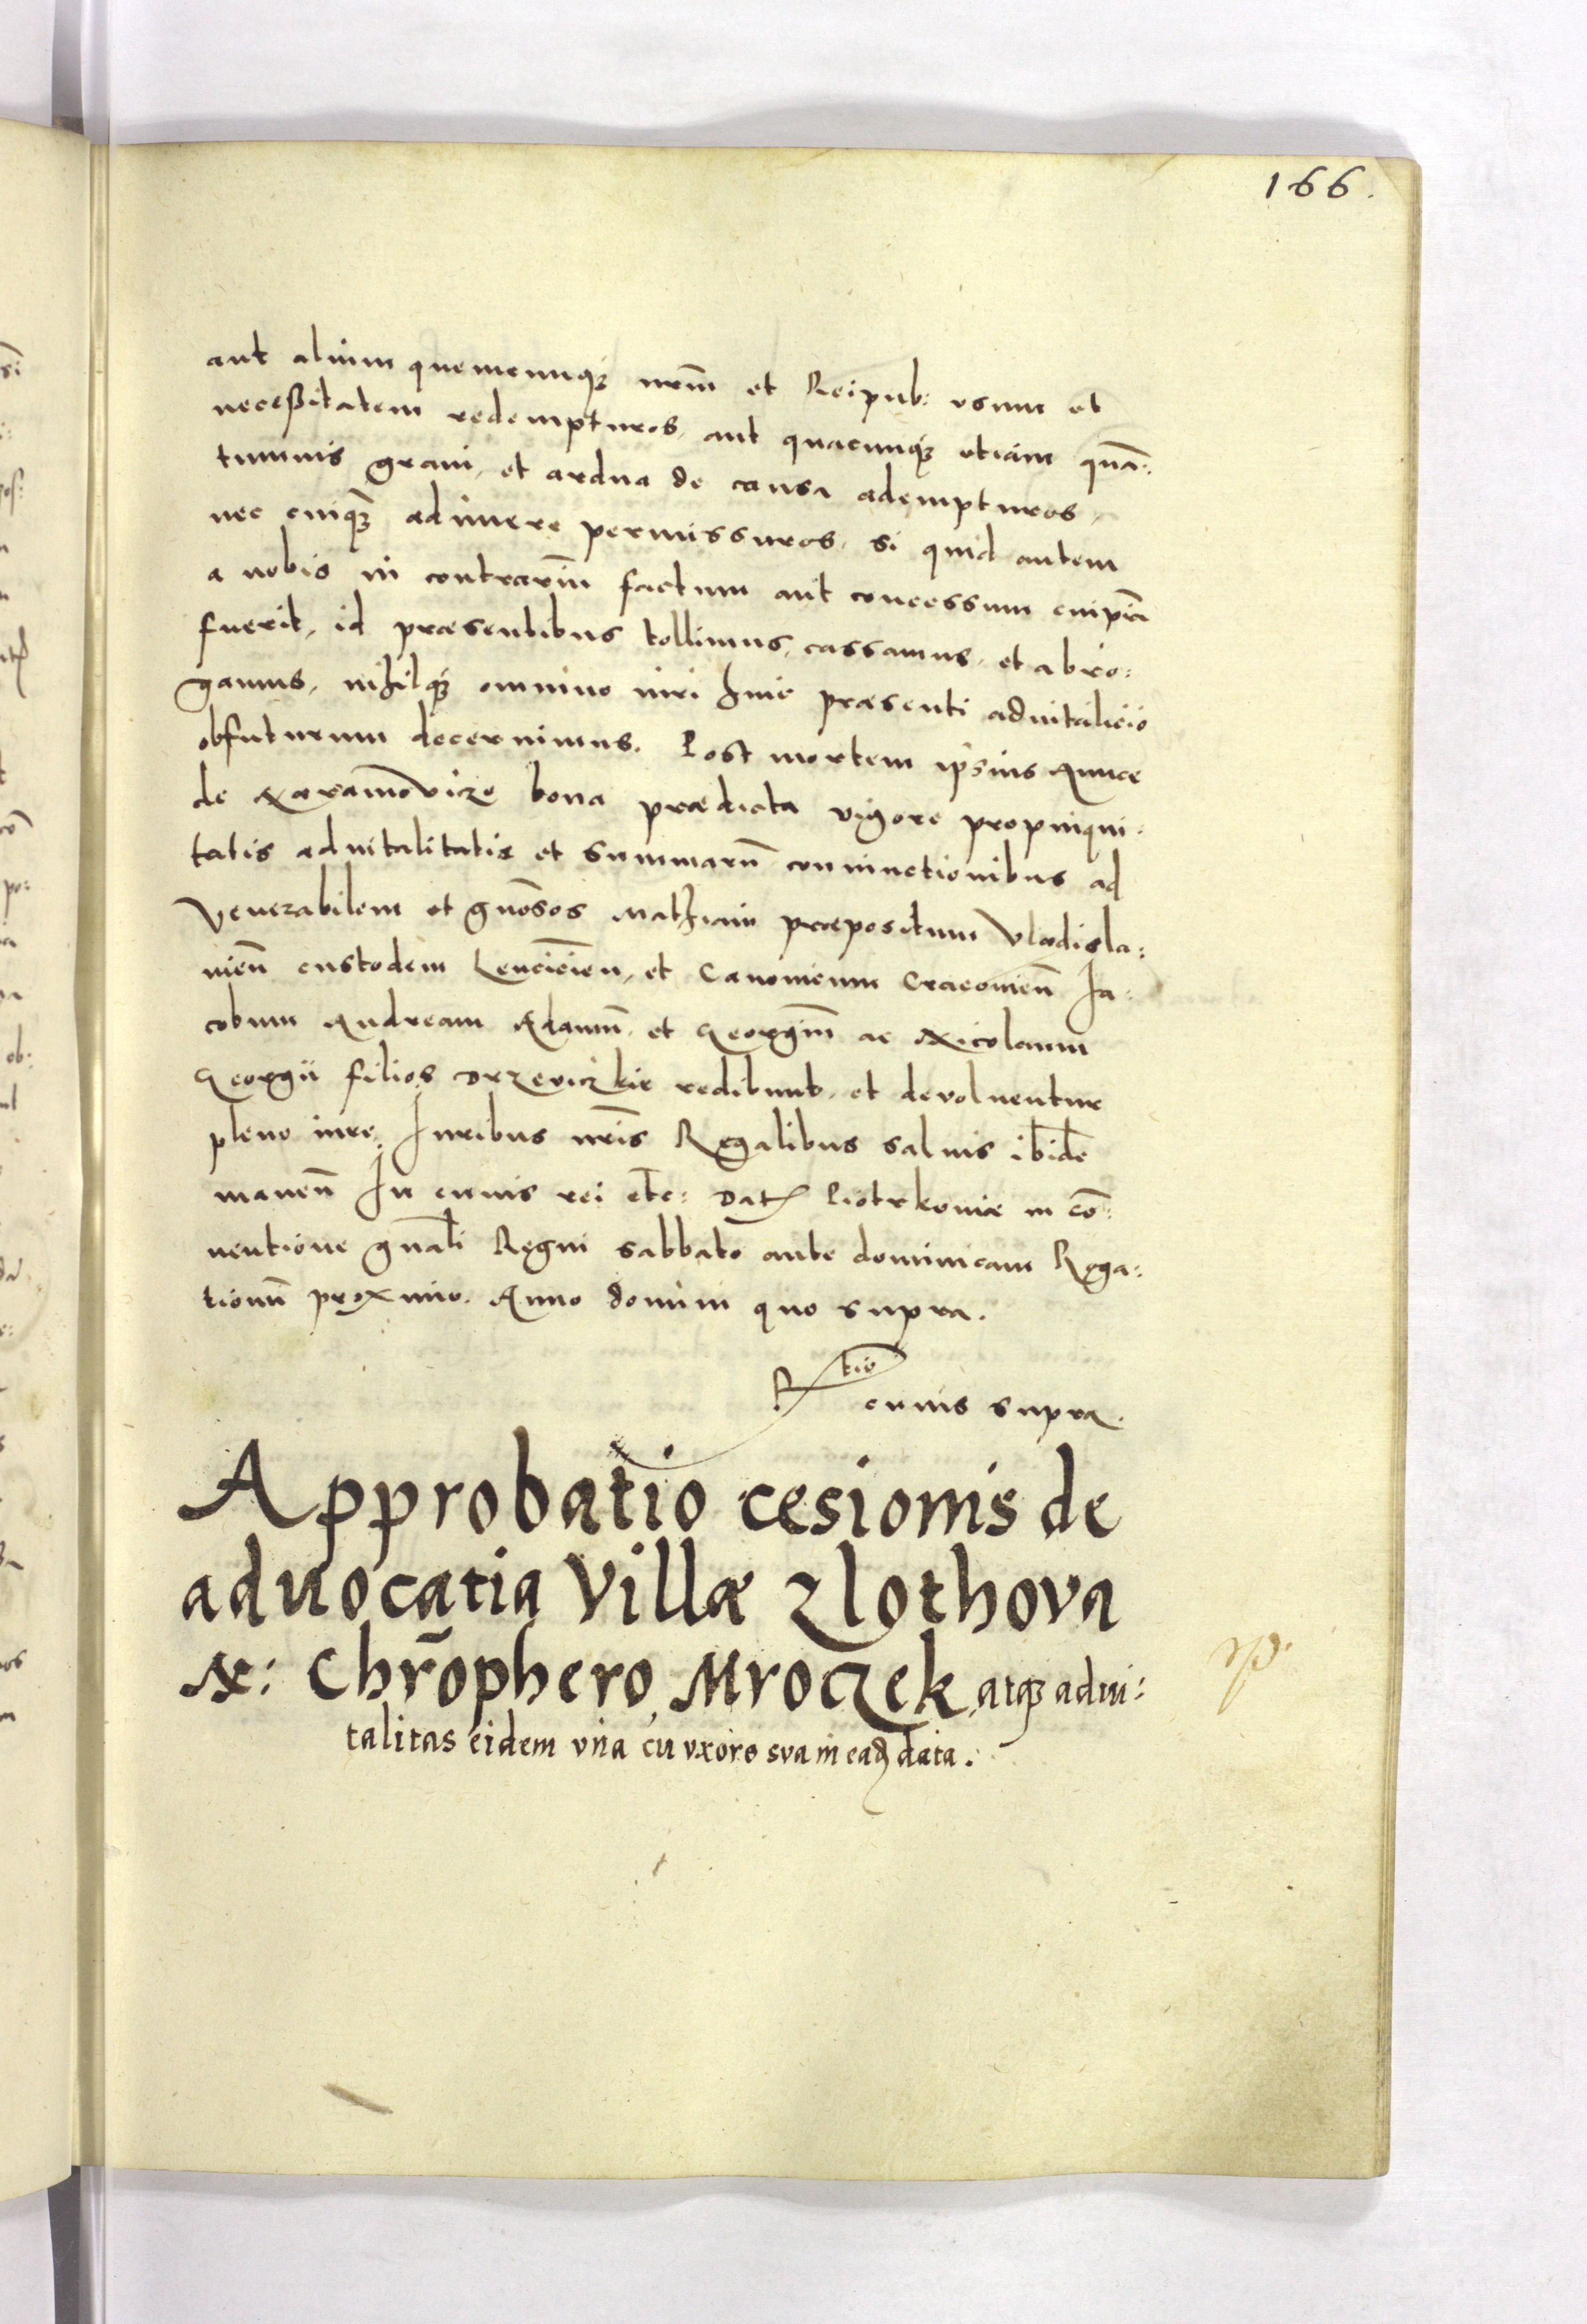 166.
aut alium quemcunq; nrm̄ et Reipub: vsum et
necessitatem redempturos, aut quacunq; etiam quā:
tumuis graui, et ardua de causa adempturos,
nec cuiq; adimere permissuros, si quid autem
a nobis in contrariū factum aut concessum cuipiā
fuerit, id præsentibus tollimus, cassamus, et abro:
gamus, nihilq; omnino iuri huic præsenti aduitalicio
obfuturum decernimus. Post mortem ipsius Annæ
de bona prædicta vigore propinqui:
tatis aduitalitatis et summarū coniunctionibus ad
Venerabilem et gnōsos Mathiam præpositum Vladisla:
uien̄ custodem Lencicien̄, et Canonicum Cracouien̄ Ja:
cobum Andream Adamū, et Georgiū ac Nicolaum
Georgii filios Drzeviczkie redibunt, et deuoluentur
pleno iure, Juribus nrīs Regalibus saluis ibidē
manen̄ In cuius rei etc: Dat Piotrkouiæ in cō:
uentione gnāli Regni sabbato ante dominicam Roga:
tionū proximo. Anno domini quo supra.
Rtio
cuius supra.
Approbatio cesionis de
aduocatia Villæ Zlothova
N: Chrōphero Mroczek, atq; adui:
talitas eidem vna cū vxore sua in eađ data.